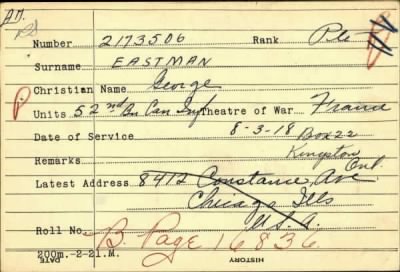 A.M.
Number 2173506 Rank Pte
Surname EASTMAN
Christian Name George
Units 52nd Bn Can Inf Theatre of War France
Date of Service 8-3-18 Box 22
Remarks Kingston Ont.
Latest Address 8412 Constance Ave
Chicago Ills
U.S.A.
Roll No. B. Page 16836
200m.-2-21.M.
DATE HISTORY